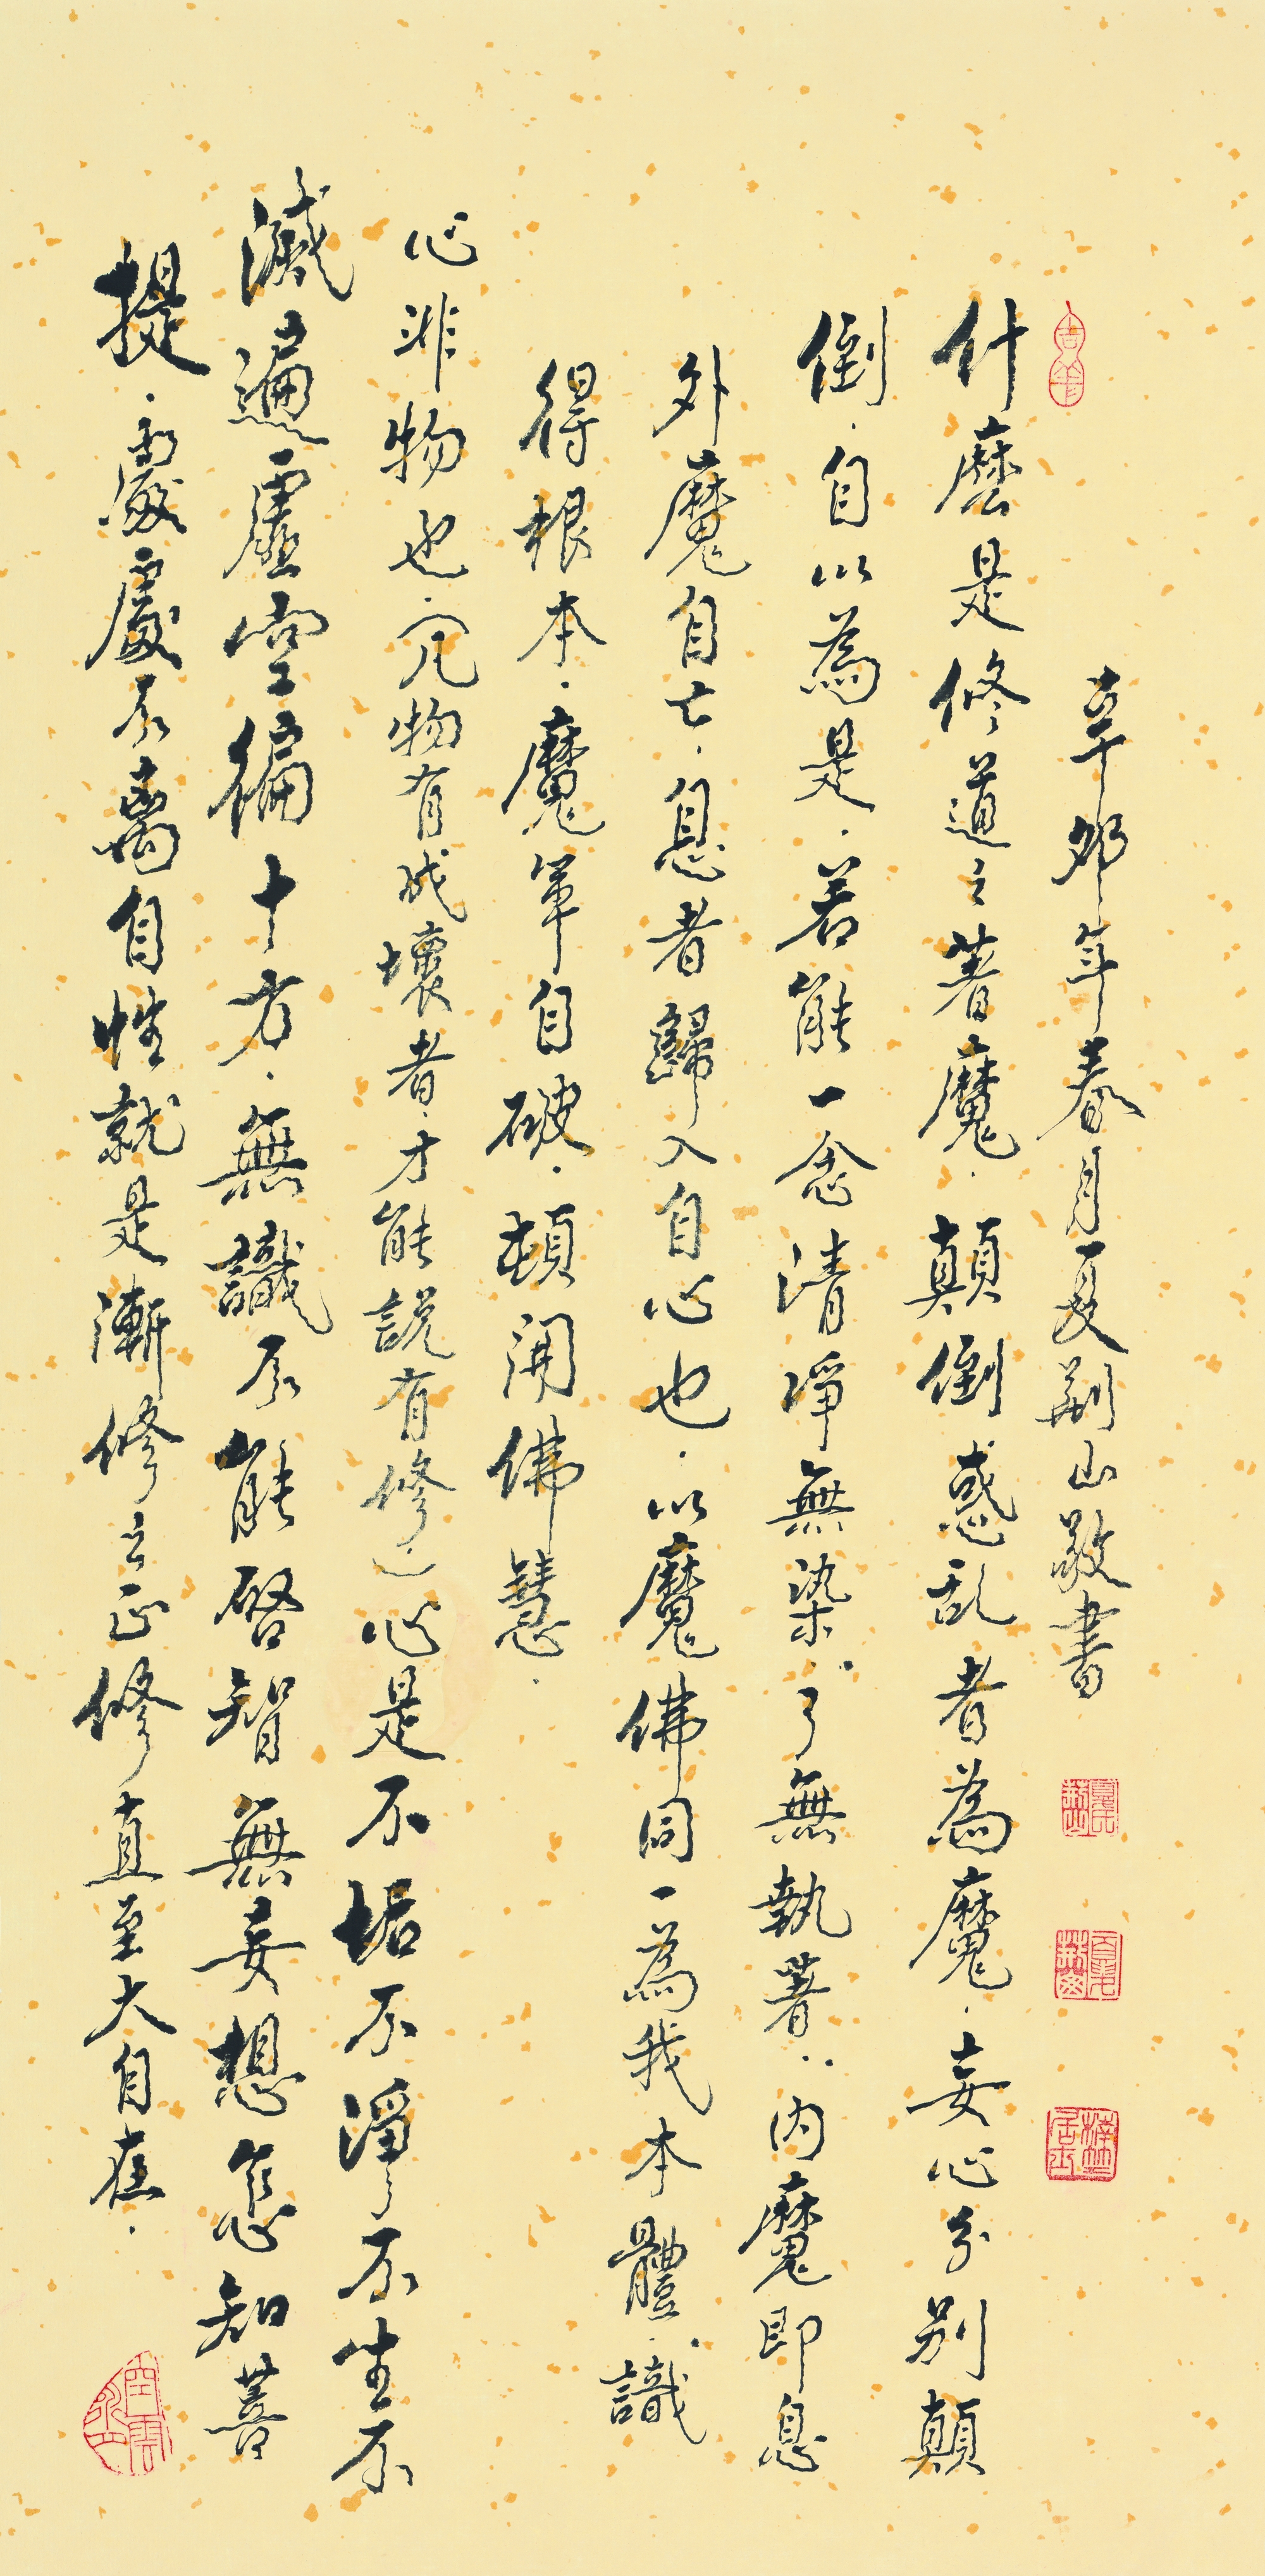 辛卯年春月夏荆山敬書
什麽是修道之著魔．顛倒惑乱者為魔．妄心分别顛
倒．自以為是．若能一念清净無染．了無執著．内魔即息
外魔自亡．息者歸入自心也．以魔佛同一為我本體．識
得根本．魔軍自破．頓開佛慧．
心非物也．凡物有成壞者．才能説有修．心是不垢不淨不生不
滅遍虛空徧十方．無識不能啓智無妄想怎知菩
提．處處不离自性就是漸修之正修直至大自在．